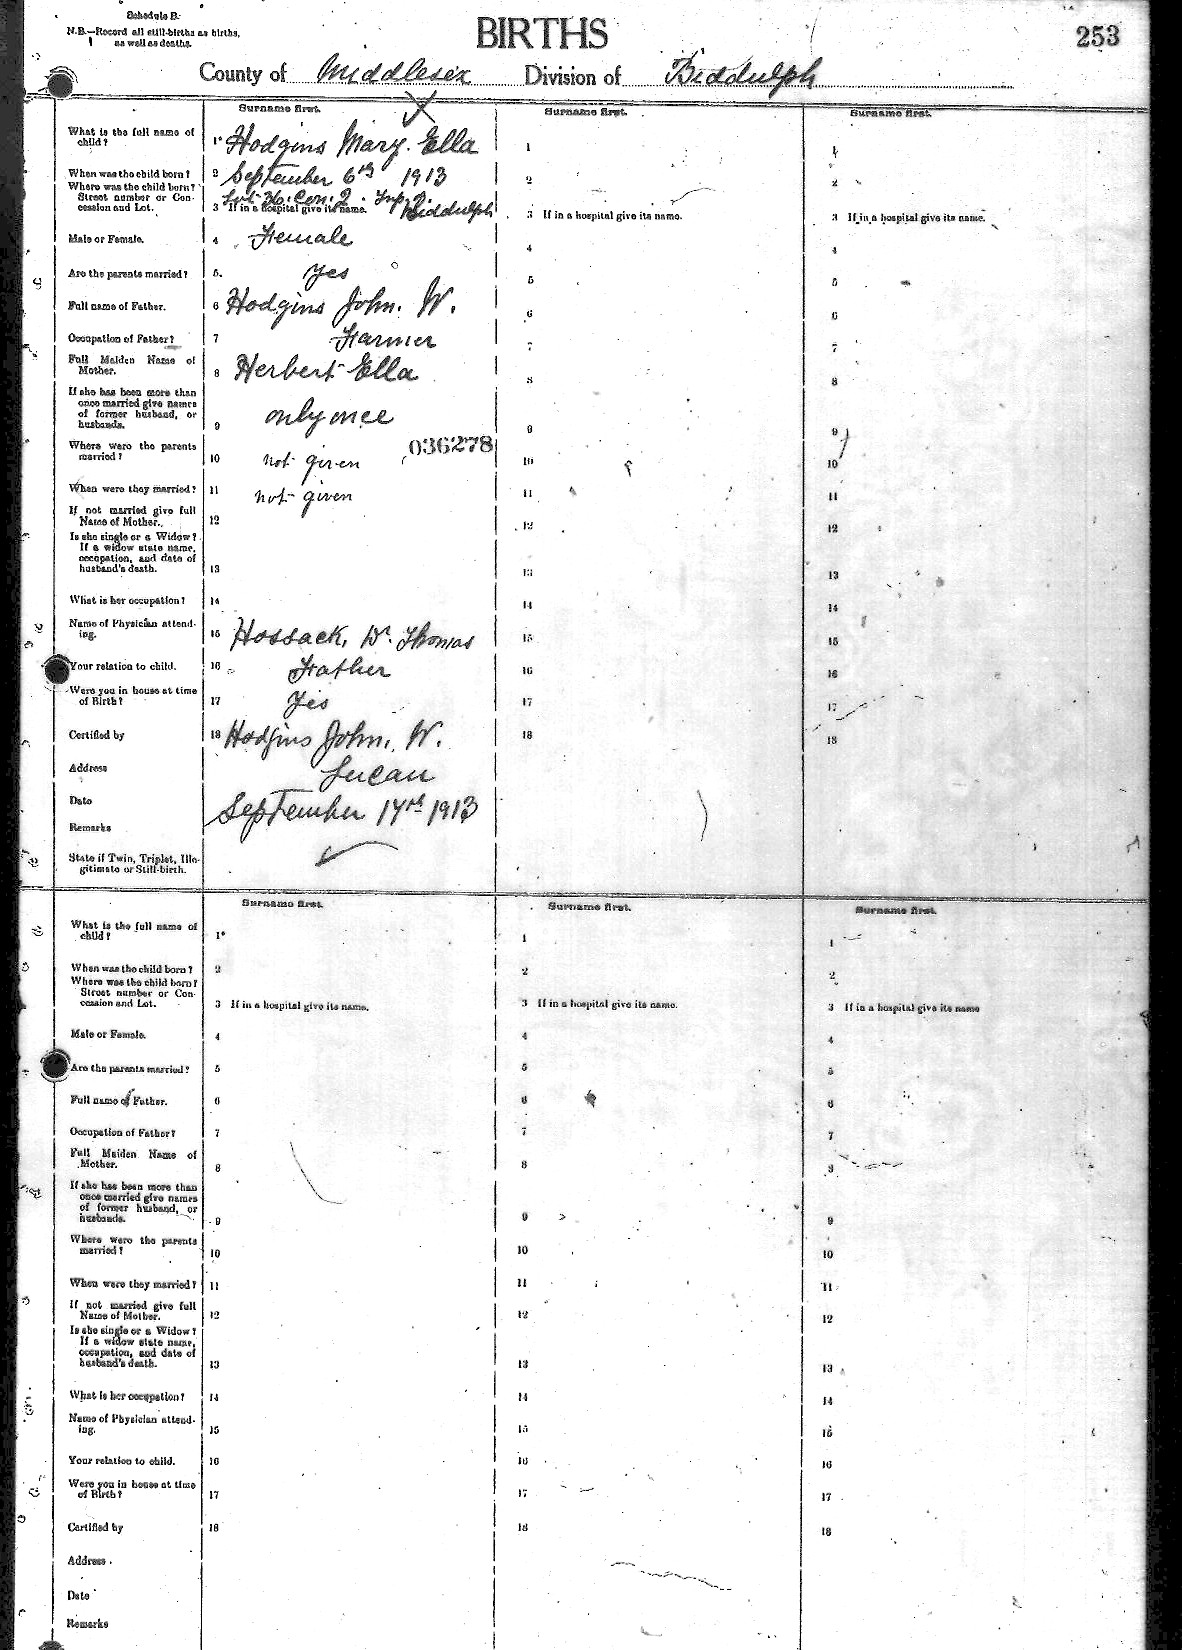 Schedule B.
N.B.—Record all still-births as births,
as well as deaths.
BIRTHS
253
County of Middlesex Division of Biddulph
Surname first.
Surname first.
Surname first.
What is the full name of child? 1 Hodgins Mary Ella 1 1
When was the child born? 2 September 6th 1913 2 2
Where was the child born? Street number or Concession and Lot. Lot 36. Con. 2. Twp Biddulph
3 If in a hospital give its name. 3 If in a hospital give its name. 3 If in a hospital give its name.
Male or Female. 4 Female 4 4
Are the parents married? 5. Yes 5 5
Full name of Father. 6 Hodgins John. W. 6 6
Occupation of Father? 7 Farmer 7 7
Full Maiden Name of Mother. 8 Herbert Ella 8 8
If she has been more than once married give names of former husband, or husbands. 9 only once 9 9
036278
Where were the parents married? 10 not given 10 10
When were they married? 11 not given 11 11
If not married give full Name of Mother. 12 12 12
Is she single or a Widow? If a widow state name, occupation, and date of husband's death. 13 13 13
What is her occupation? 14 14 14
Name of Physician attending. 15 Hossack, Dr. Thomas 15 15
Your relation to child. 16 Father 16 16
Were you in house at time of Birth? 17 Yes 17 17
Certified by 18 Hodgins John, W. 18 18
Address Lucan
Date September 17th 1913
Remarks
State if Twin, Triplet, Illegitimate or Still-birth.
Surname first.
Surname first.
Surname first.
What is the full name of child? 1 1 1
When was the child born? 2 2 2
Where was the child born? Street number or Concession and Lot. 3 If in a hospital give its name. 3 If in a hospital give its name. 3 If in a hospital give its name
Male or Female. 4 4 4
Are the parents married? 5 5 5
Full name of Father. 6 6 6
Occupation of Father? 7 7 7
Full Maiden Name of Mother. 8 8 8
If she has been more than once married give names of former husband, or husbands. 9 9 9
Where were the parents married? 10 10 10
When were they married? 11 11 11
If not married give full Name of Mother. 12 12 12
Is she single or a Widow? If a widow state name, occupation, and date of husband's death. 13 13 13
What is her occupation? 14 14 14
Name of Physician attending. 15 15 15
Your relation to child. 16 16 16
Were you in house at time of Birth? 17 17 17
Certified by 18 18 18
Address
Date
Remarks